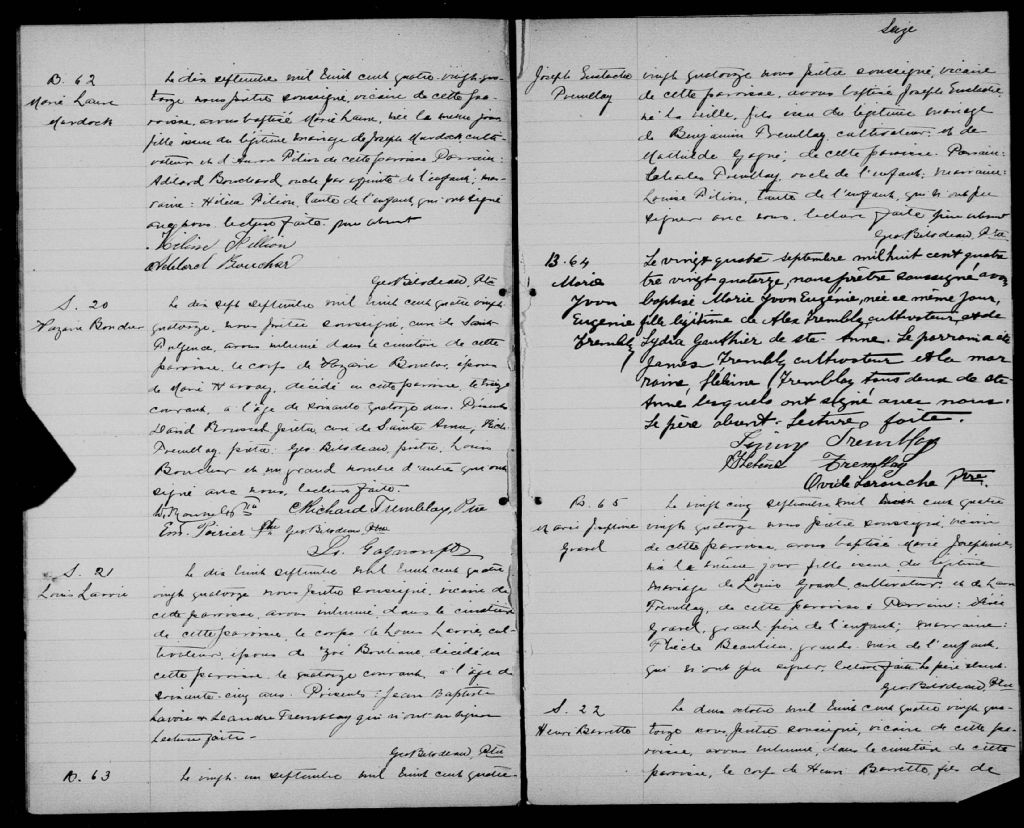 B. 62
Marie Laure
Murdock
Le dix septembre mil huit cent quatre-vingt qua-
torze nous prêtre soussigné, vicaire de cette pa-
roisse, avons baptisé Marie Laure, née le même jour
fille issue du légitime mariage de Joseph Murdock culti-
vateur et d'Anna Pilion de cette paroisse. Parrain:
Adélard Bouchard oncle par affinité de l'enfant; mar-
raine: Héléna Pilion, tante de l'enfant, qui ont signé
avec nous. Lecture faite. père absent
Adélard Bouchar
Geo Bilodeau, Ptre
S. 20
Le dix sept septembre mil huit cent quatre vingt
quatorze, nous prêtre soussigné, curé de Saint
Fulgence, avons inhumé dans le cimetière de cette
paroisse, le corps de Nazaire Boucher, époux
de Marie Harvay, décédé en cette paroisse, le treize
courant, à l'âge de soixante quatorze ans. Présents
David Roussel prêtre, curé de Sainte Anne, Rich.
Tremblay, prêtre. Geo Bilodeau, prêtre, Louis
Boucher et un grand nombre d'autres qui ont
signé avec nous, lecture faite.
Richard Tremblay, Ptre
Em. Poirier Ptre Geo Bilodeau, Ptre
Gagnon ptre
S. 21
Louis Lavoie
Le dix huit septembre mil huit cent quatre
vingt quatorze nous prêtre soussigné, vicaire de
cette paroisse, avons inhumé, dans le cimetière
de cette paroisse, le corps de Louis Lavoie, cul-
tivateur, époux de Zoé, décédé en
cette paroisse, le quatorze courant, à l'âge de
soixante-cinq ans. Présents: Jean Baptiste
Lavoie & Léandre Tremblay qui n'ont su signer
Lecture faite.
Geo Bilodeau, Ptre
B. 63
Le vingt-un septembre mil huit cent quatre-
Seize
Joseph Eustache
Tremblay
vingt quatorze nous prêtre soussigné, vicaire
de cette paroisse, avons baptisé Joseph Eustache,
né la veille, fils issu du légitime mariage
de Benjamin Tremblay cultivateur, et de
Mathilde Gagné, de cette paroisse. Parrain:
Charles Tremblay, oncle de l'enfant; marraine:
Louise Pilion, tante de l'enfant, qui n'ont pu
signer avec nous. lecture faite père absent
Geo Bilodeau, Ptre
B. 64
Marie
Yvon
Eugénie
Trembly
Le vingt quatre septembre mil huit cent quatre
tre vingt quatorze, nous prêtre soussigné avons
baptisé Marie Yvon Eugénie, née ce même jour,
fille légitime de Alex Trembly, cultivateur, et de
Lydia Gauthier de ste. Anne. Le parrain a été
James Trembly cultivateur et la mar
raine, Hélène Tremblay tous deux de ste
Anne lesquels ont signé avec nous.
Le père absent. Lecture, faite.
Tremblay
Hélène Tremblay
Ovide Larouche ptre.
B. 65
Marie Joséphine
Gravel
Le vingt cinq septembre mil huit cent quatre
vingt quatorze nous prêtre soussigné, vicaire
de cette paroisse, avons baptisé Marie Joséphine,
née le même jour fille issue du légitime
mariage de Louis Gravel cultivateur, et de Laure
Tremblay, de cette paroisse. Parrain:
Gravel, grand-père de l'enfant; marraine:
Beaulieu, grande mère de l'enfant,
qui n'ont pu signer, lecture faite le père absent.
Geo Bilodeau, Ptre
S. 22
Henri Barrette
Le deux octobre mil huit cent quatre vingt qua-
torze nous prêtre soussigné, vicaire de cette pa-
roisse, avons inhumé, dans le cimetière de cette
paroisse, le corps de Henri Barrette, fils de